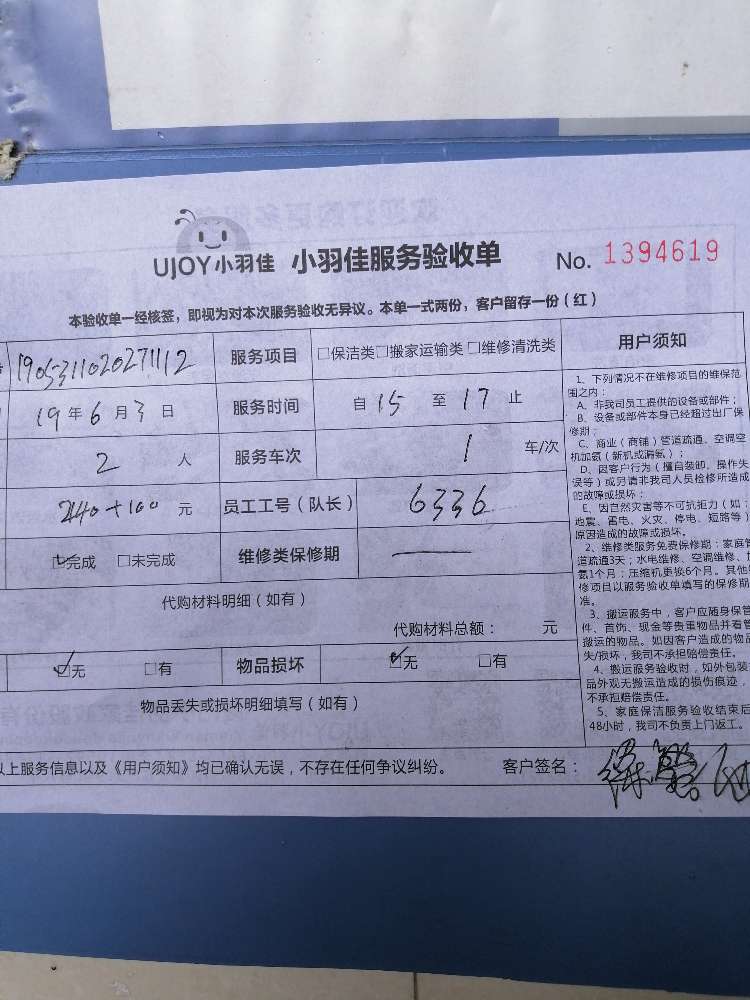 UJOY小羽佳 小羽佳服务验收单 No. 1394619
本验收单一经核签，即视为对本次服务验收无异议。本单一式两份，客户留存一份（红）
1905311020271112 服务项目 □保洁类□搬家运输类□维修清洗类
19年6月3日 服务时间 自15至17止
2人 服务车次 1 车/次
240+100元 员工工号（队长） 6336
☑完成 □未完成 维修类保修期 —
代购材料明细（如有）
代购材料总额： 元
☑无 □有 物品损坏 ☑无 □有
物品丢失或损坏明细填写（如有）
以上服务信息以及《用户须知》均已确认无误，不存在任何争议纠纷。 客户签名：
用户须知
1、下列情况不在维修项目的维保范
围之内：
A、非我司员工提供的设备或部件；
B、设备或部件本身已经超过出厂保
修期；
C、商业（商铺）管道疏通、空调空
机加氨（新机或漏氨）；
D、因客户行为（擅自装卸、操作失
误等）或另请非我司人员检修所造成
的故障或损坏；
E、因自然灾害等不可抗拒力（如：
地震、雷电、火灾、停电、短路等）
原因造成的故障或损坏。
2、维修类服务免费保修期：家庭管
道疏通3天；水电维修、空调维修、加
氨1个月；压缩机更换6个月。其他
修项目以服务验收单填写的保修期
准。
3、搬运服务中，客户应随身保管
件、首饰、现金等贵重物品并看管
搬运的物品。如因客户造成的物品
失/损坏，我司不承担赔偿责任。
4、搬运服务验收时，如外包装
品外观无搬运造成的损伤痕迹，
不承担赔偿责任。
5、家庭保洁服务验收结束后
48小时，我司不负责上门返工。